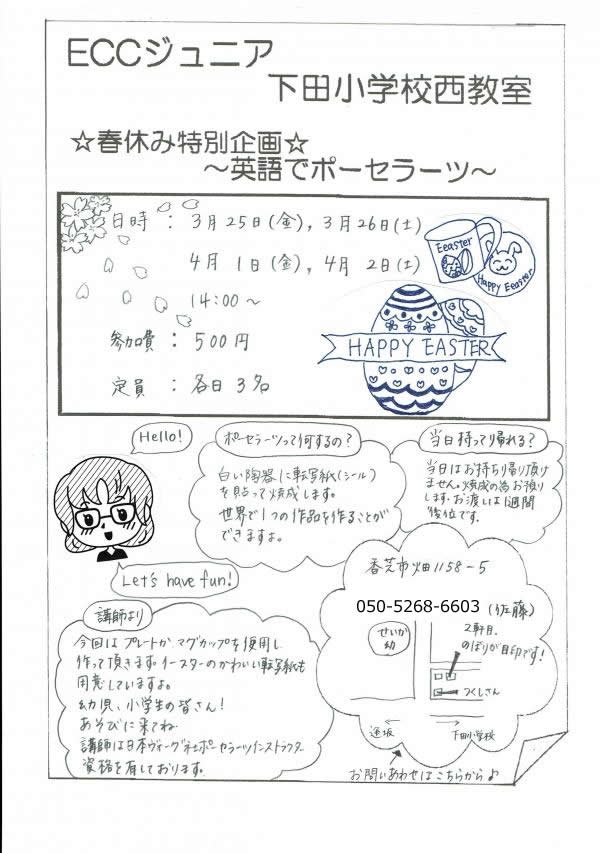 ECCジュニア
下田小学校西教室
☆春休み特別企画☆
～英語でポーセラーツ～
日時 : 3月25日(金), 3月26日(土)
4月 1日(金), 4月 2日(土)
14:00～
参加費 : 500円
定員 : 各日 3名
Eeaster
Happy Eeaster
HAPPY EASTER
Hello!
ポーセラーツって何するの?
白い陶器に転写紙(シール)
を貼って焼成します。
世界で1つの作品を作ることが
できますよ。
当日持って帰れる?
当日はお持ち帰り頂け
ません。焼成の為お預り
します。お渡しは1週間
後位です。
Let's have fun!
講師より
今回はプレートか、マグカップを使用し
作って頂きます。イースターのかわいい転写紙も
用意していますよ。
幼児、小学生の皆さん!
あそびに来てね
講師は日本ヴォーグ社ポーセラーツインストラクター
資格を有しております。
香芝市畑1158-5
050-5268-6603 (佐藤)
せいか
幼
2軒目。
のぼりが目印です!
つくしさん
逢坂
下田小学校
お問いあわせはこちらから♪